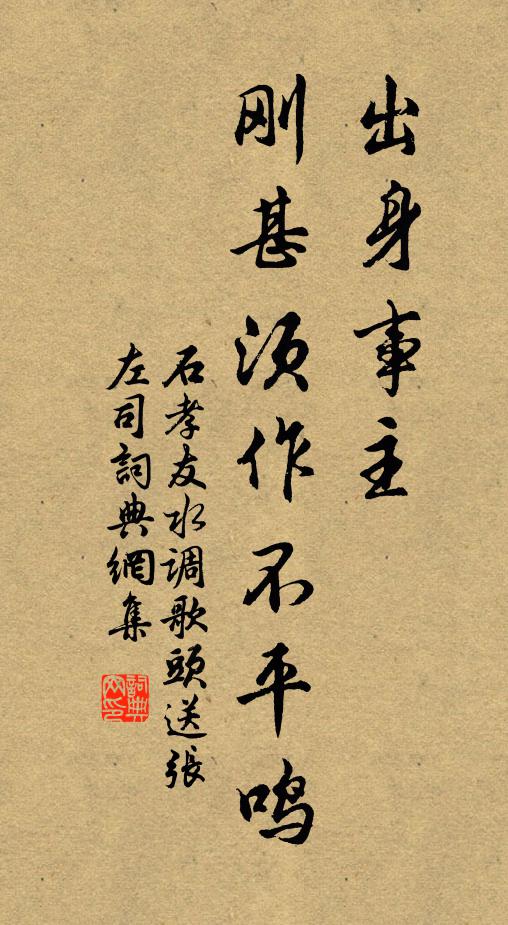 出身事主
刚甚须作不平鸣
石孝友水调歌頭送張
左司詞典網集
詞典网印